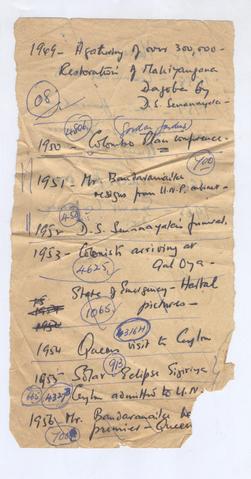 1949 - A gathering of over 300,000 -
Restoration of Mahiyangana
Dagoba by
D.S. Senanayake -
08
4806
1950 - Colombo Plan conference -
700
1951 - Mr. Bandaranaike
resigns from U.N.P. cabinet -
1952 - D.S. Senanayake's funeral.
1953 - Colonists arriving at
Gal Oya -
4625
State of Emergency - Hartal
pictures -
1065
1954 Queen visit to Ceylon
913
1955 - Solar Eclipse Sigiriya
4327 Ceylon admitted to U.N.
1956 - Mr. Bandaranaike
premier - Queen
700